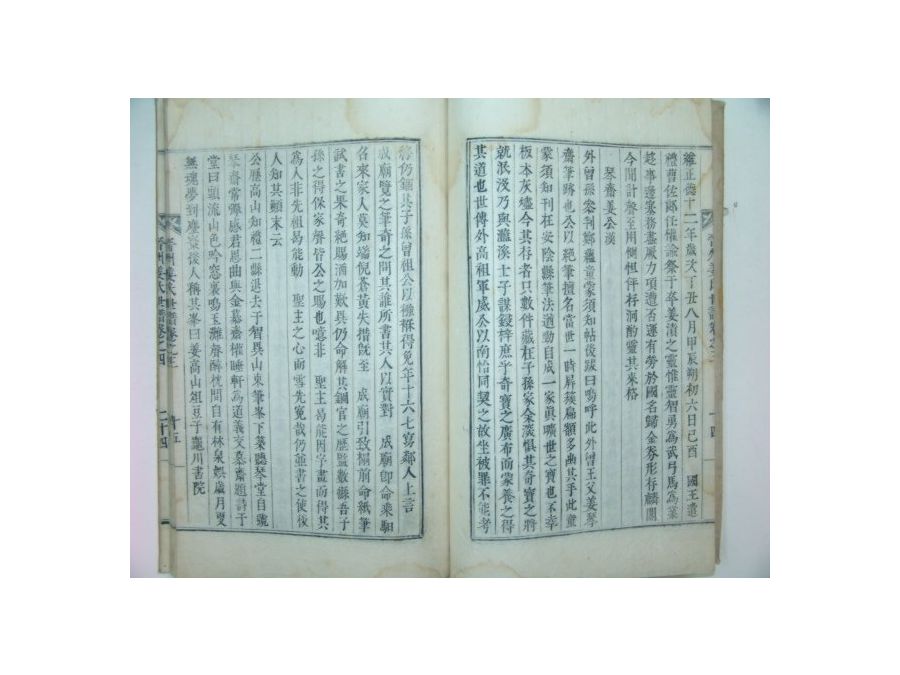 維正德十二年歲次丁丑八月甲辰朔初六日己酉 國王遣
禮曹佐郞任懽諭祭于卒姜漬之靈惟靈智勇爲武弓馬爲業
趍事邊塞務盡厥力項遭否運有勞於國名歸金券形存麟閣
今聞計聲至用惻怛伴柠泂酌靈其來格
琴齋姜公漢
外曾孫 刊鄭 童蒙須知帖後跋曰嗚呼此外曾王父姜琴
齋筆跡也公以絶筆擅名當世一時屛簇扁額多 其手此童
蒙須知刊在安陰縣筆法遒勁自成一家眞曠世之寶也不幸
板本灰燼今其存者只數件藏在子孫家余 惧其奇寶之將
就泯沒乃與濫溪士子謀鋟梓庶乎奇寶之廣布而蒙養之得
其道也世傳外高祖軍威公以南怡同契之故坐被罪不能考
終仍錮其子孫曾祖公以襁褓得免年十六七寫鄰人上言
成廟覽之筆奇之問其誰所書其人以實對 成廟卽命乘馹
召來家人莫知端倪蒼黃失措旣至 成廟引致榻前命紙筆
試書之果奇絶賜酒加歎異仍命解其錮官之歷監數縣吾子
孫之得保家聲皆公之賜也噫非 聖主曷能因字畫而得其
爲人非先祖曷能動 聖主之心而雪先冤哉仍並書之使後
人知其顚末云
公歷高山知禮二縣退去于智異山東筆峯下築聽琴堂自號
琴齋常 感君恩曲與金慕齋 睡軒爲道義交慕齋題詩于
堂曰頭流山色吟窓裏鳴玉灘聲醉枕間自有林泉娛歲月更
無魂夢到塵寰後人稱其峯曰姜高山俎豆于龜川書院
晉州姜氏世譜卷之
十五
晉州姜氏世譜卷之四
二十四